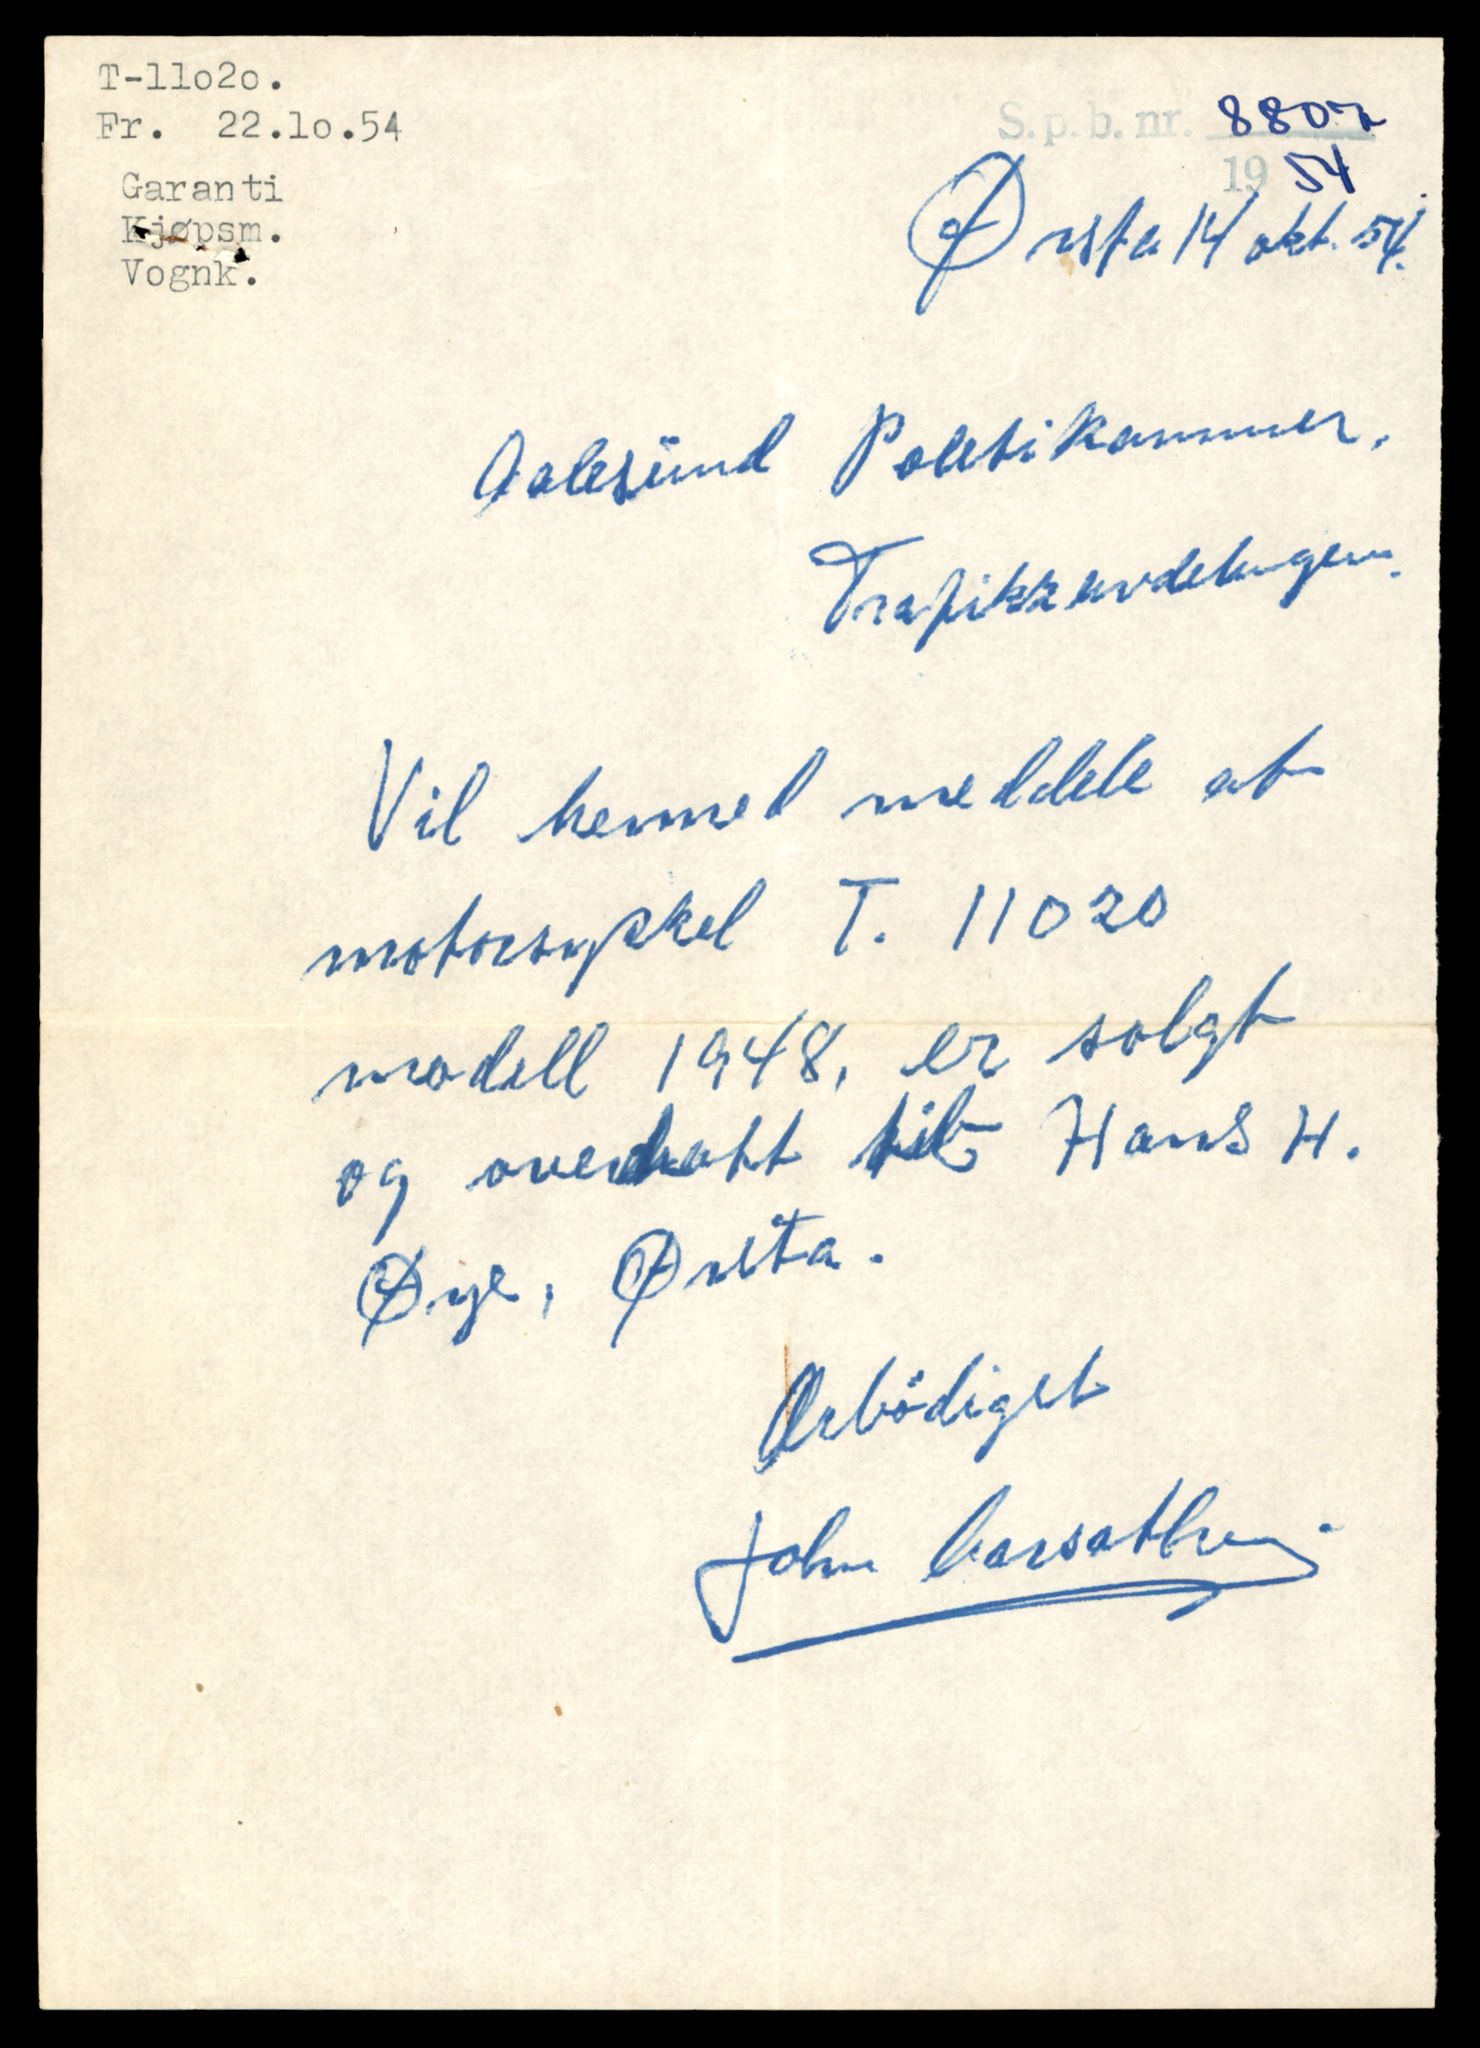 T-11o2o.
Fr. 22.1o.54
Garanti
Kjøpsm.
Vognk.
S.p.b. nr. 8807
19 54
Ørsta 14 okt. 54.
Aalesund Politikammer.
Trafikkavdelingen.
Vil hermed meddele at
motorsykkel T. 11020
modell 1948, er solgt
og overdratt til Hans H.
Øye, Ørsta.
Ærbödigst
John